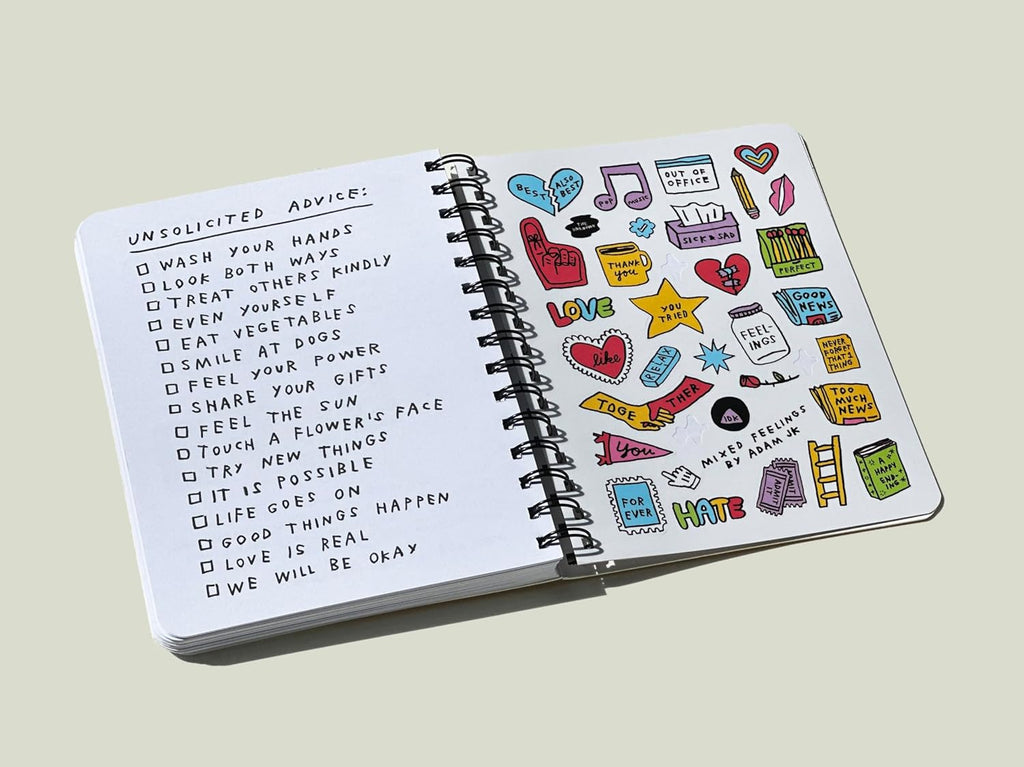 UNSOLICITED ADVICE:
WASH YOUR HANDS
LOOK BOTH WAYS
TREAT OTHERS KINDLY
EVEN YOURSELF
EAT VEGETABLES
SMILE AT DOGS
FEEL YOUR POWER
SHARE YOUR GIFTS
FEEL THE SUN
TOUCH A FLOWER'S FACE
TRY NEW THINGS
IT IS POSSIBLE
LIFE GOES ON
GOOD THINGS HAPPEN
LOVE IS REAL
WE WILL BE OKAY
BEST
ALSO
BEST
POP MUSIC
OUT OF
OFFICE
THE
SICK & SAD
THANK
you
PERFECT
LOVE
YOU
TRIED
GOOD
NEWS
FEEL-
INGS
like
RELAX
NEVER
FORGET
THAT 1
THING
TOGE
THER
IDK
TOO
MUCH
NEWS
You
MIXED FEELINGS
BY ADAM JK
FOR
EVER
HATE
ADMIT
IT
ADMIT
A
HAPPY
END-
ING